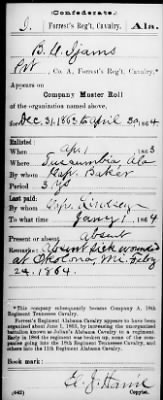 Confederate.
Forrest's Reg't, Cavalry. Ala.
Pvt, Co. A, Forrest's Reg't, Cavalry.*
Appears on
Company Muster Roll
of the organization named above,
for Dec 31, 1863, to April 30, 1864
Enlisted:
When Apr 1, 1863
Where Tuscumbia Ala
By whom Capt. Baker
Period 3 Ys
Last paid:
By whom Capt.
To what time Jany 1, 1864
Present or absent Absent
Remarks: Absent sick wounded
at Okolona, Mi. Feby
22. 1864.
*This company subsequently became Company A, 18th
Regiment Tennessee Cavalry.
Forrest's Regiment Alabama Cavalry appears to have
been organized about June 1, 1863, by increasing the
organization
known as Julian's Alabama Cavalry to a regiment.
Early in 1864 the regiment was broken up, some of the com-
panies going into the
Regiment Tennessee Cavalry, and
others into the 11th Regiment Alabama Cavalry.
Book mark:
(642)
Copyist.